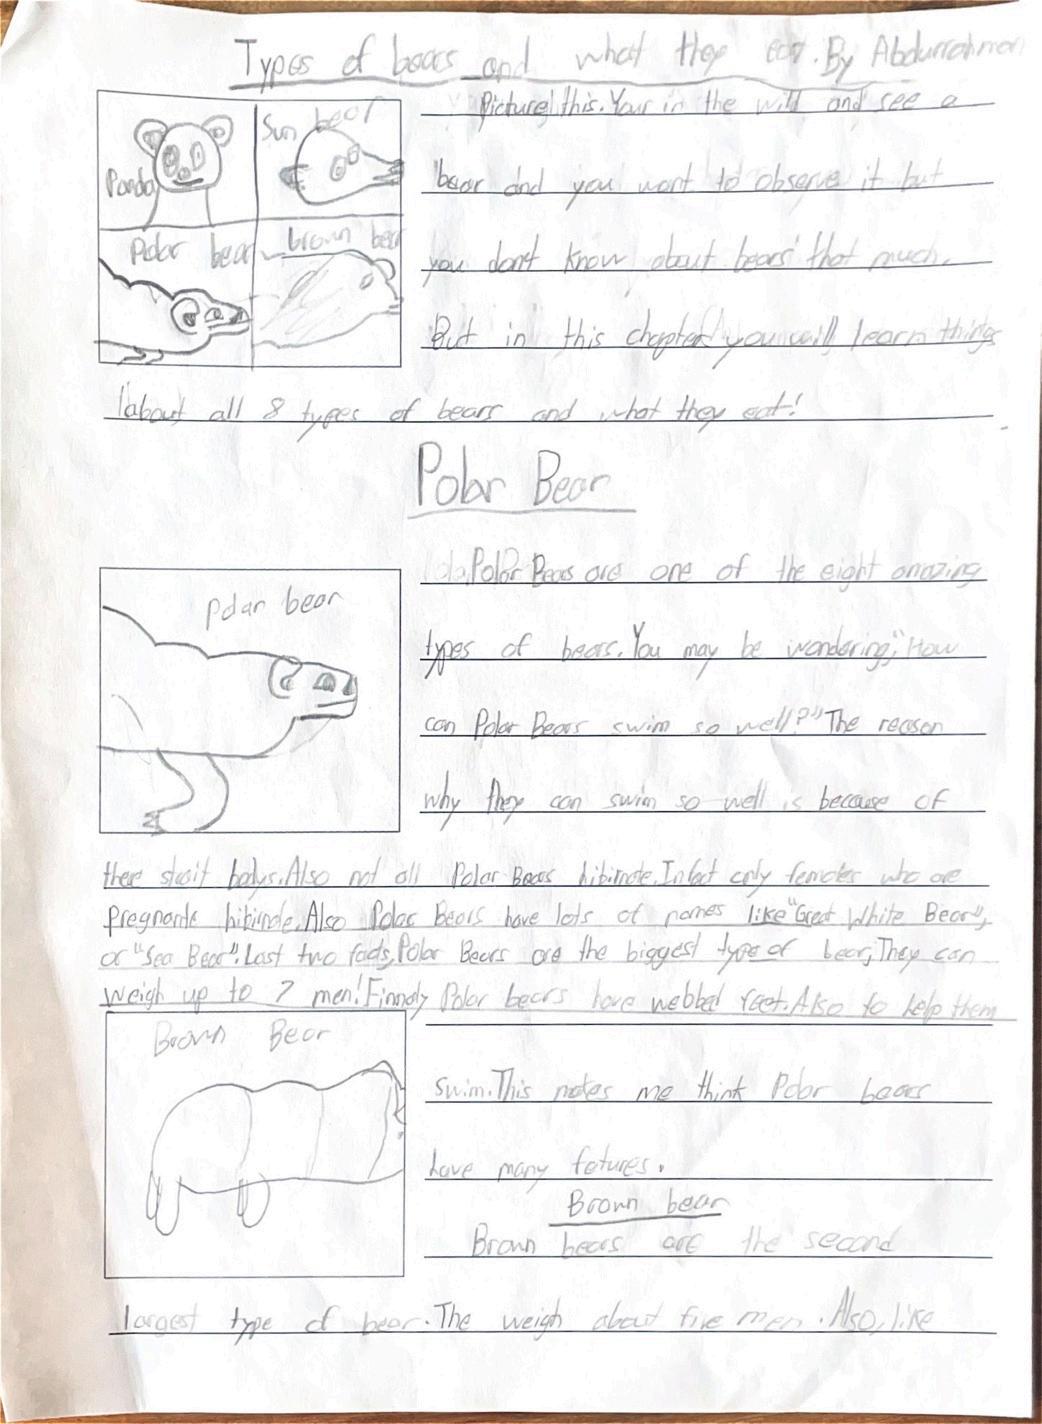 Types of bears and what they eat. By Abdurrahman
Panda
Sun bear
Polar bear
brown bear
Picture this. Your in the will and see a
bear and you want to observe it but
you don't know about bears that much.
But in this chapter you will learn things
about all 8 types of bears and what they eat!
Polar Bear
polar bear
Polar Bears are one of the eight amazing
types of bears. You may be wondering, "How
can Polar Bears swim so well?" The reason
why they can swim so well is because of
there strait bodys. Also not all Polar Bears hibirnate. Infact only females who are
pregnante hibirnate. Also Polar Bears have lots of names like "Great White Bear",
or "Sea Bear". Last two facts, Polar Bears are the biggest type of bear, They can
weigh up to 7 men! Finnaly Polar bears have webbed feet. Also to help them
Brown Bear
swim. This makes me think Polar bears
have many fatures.
Brown bear
Brown bears are the second
largest type of bear. The weigh about five men. Also, like